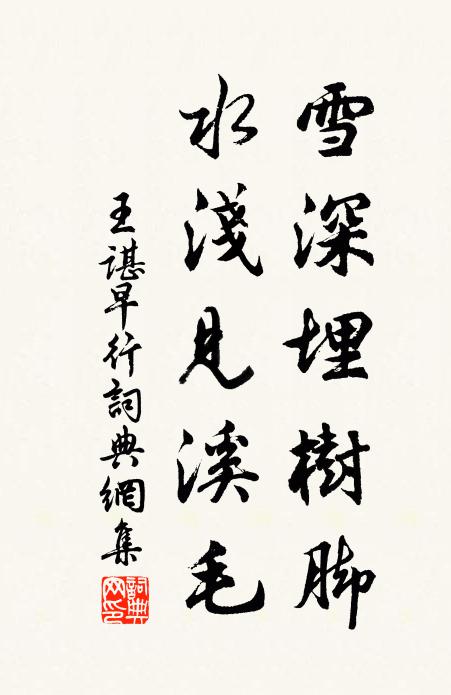 雪深埋樹脚
水淺見溪毛
王諶早行詞典網集
詞典网印